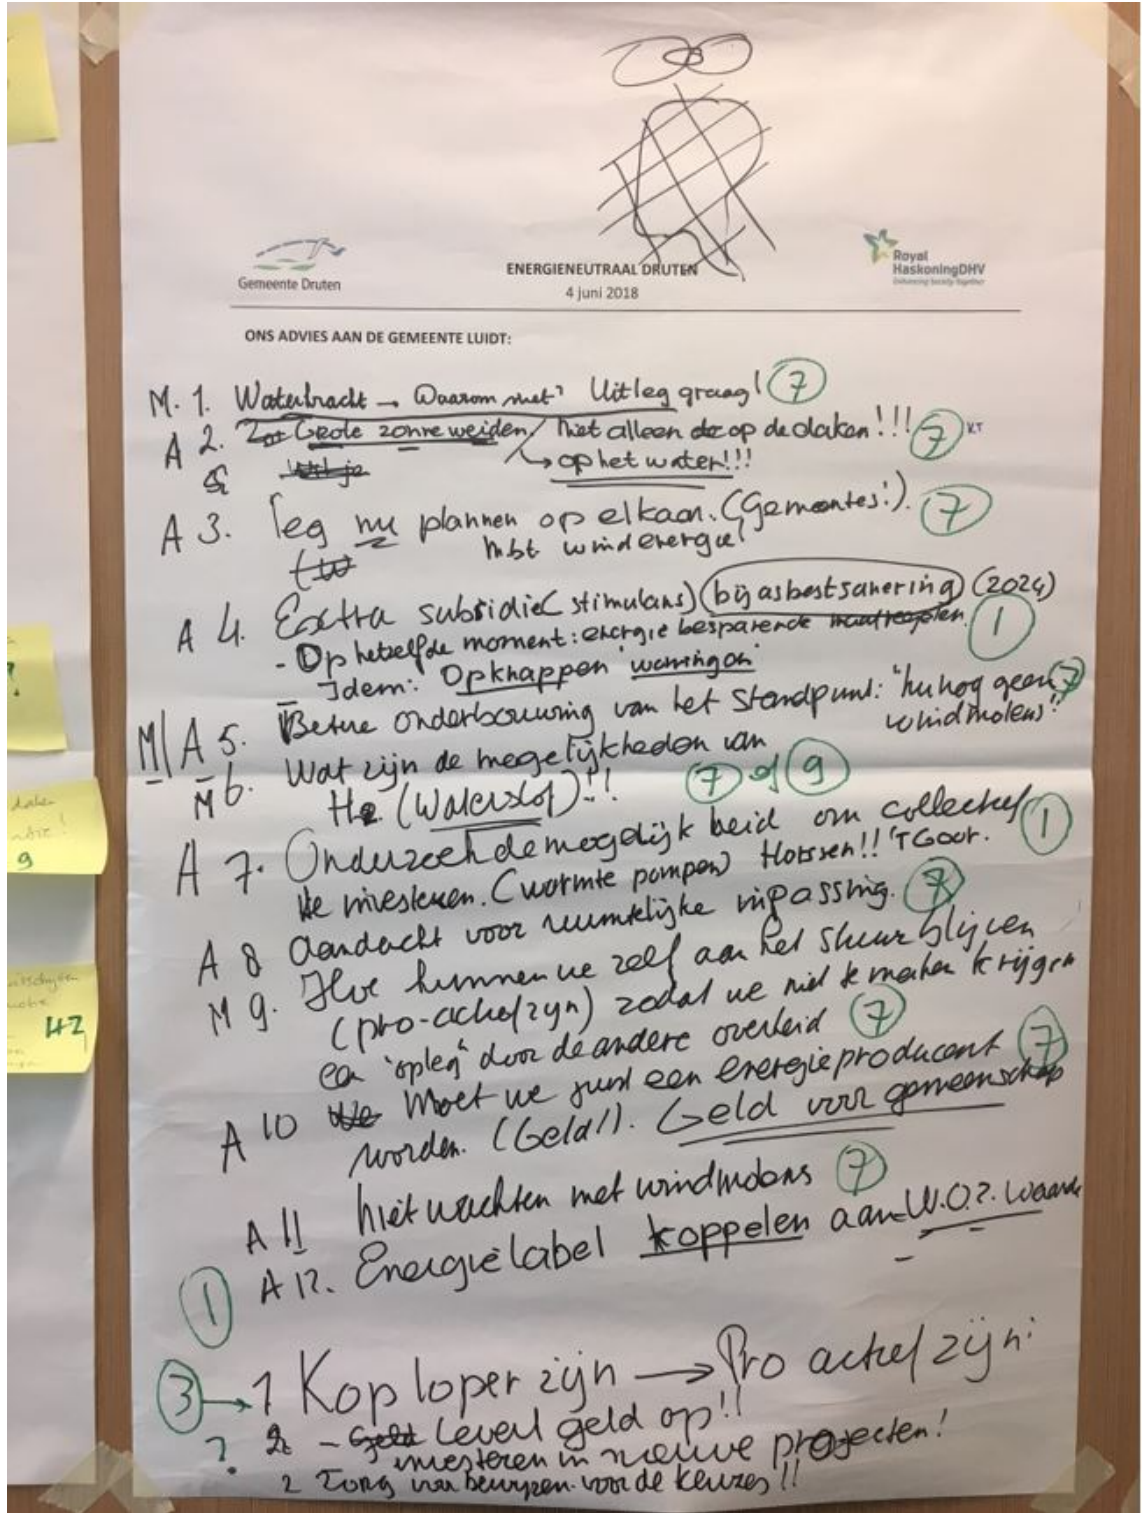 Gemeente Druten
ENERGIENEUTRAAL DRUTEN
4 juni 2018
Royal
HaskoningDHV
Enhancing Society Together
ONS ADVIES AAN DE GEMEENTE LUIDT:
M. 1. Waterkracht → Waarom niet? Uitleg graag! 7
A 2. Grote zonneweiden / Niet alleen op de daken!!! 7
→ op het water!!!
A 3. leg nu plannen op elkaar. (Gemeentes!). 7
mbt windenergie!
A 4. Extra subsidie (stimulans) (bij asbestsanering) (2024)
- Op hetzelfde moment: energie besparende maatregelen. 1
- Idem: Opknappen woningen
M/A 5. Betere onderbouwing van het standpunt: "nu nog geen 7
windmolens"
M 6. Wat zijn de mogelijkheden van
H2 (Waterstof)!! 7 of 9
A 7. Onderzoek de mogelijkheid om collectief 1
te investeren. (warmte pompen) Horssen!! 'T Goor.
A 8 Aandacht voor ruimtelijke inpassing. 7
M 9. Hoe kunnen we zelf aan het stuur blijven
(pro-actief zijn) zodat we niet te maken krijgen
een "opleg" door de andere overheid 7
A 10 Moet we juist een energieproducent 7
worden. (Geld!!). Geld voor gemeenschap
A 11 Niet wachten met windmolens 7
A 12. Energielabel koppelen aan W.O.Z. waarde
1
3 → 1 Koploper zijn → Pro actief zijn
? 2 - Levert geld op!!
investeren in nieuwe projecten!
2 Zorg voor bewijzen voor de keuzes!!
9
42